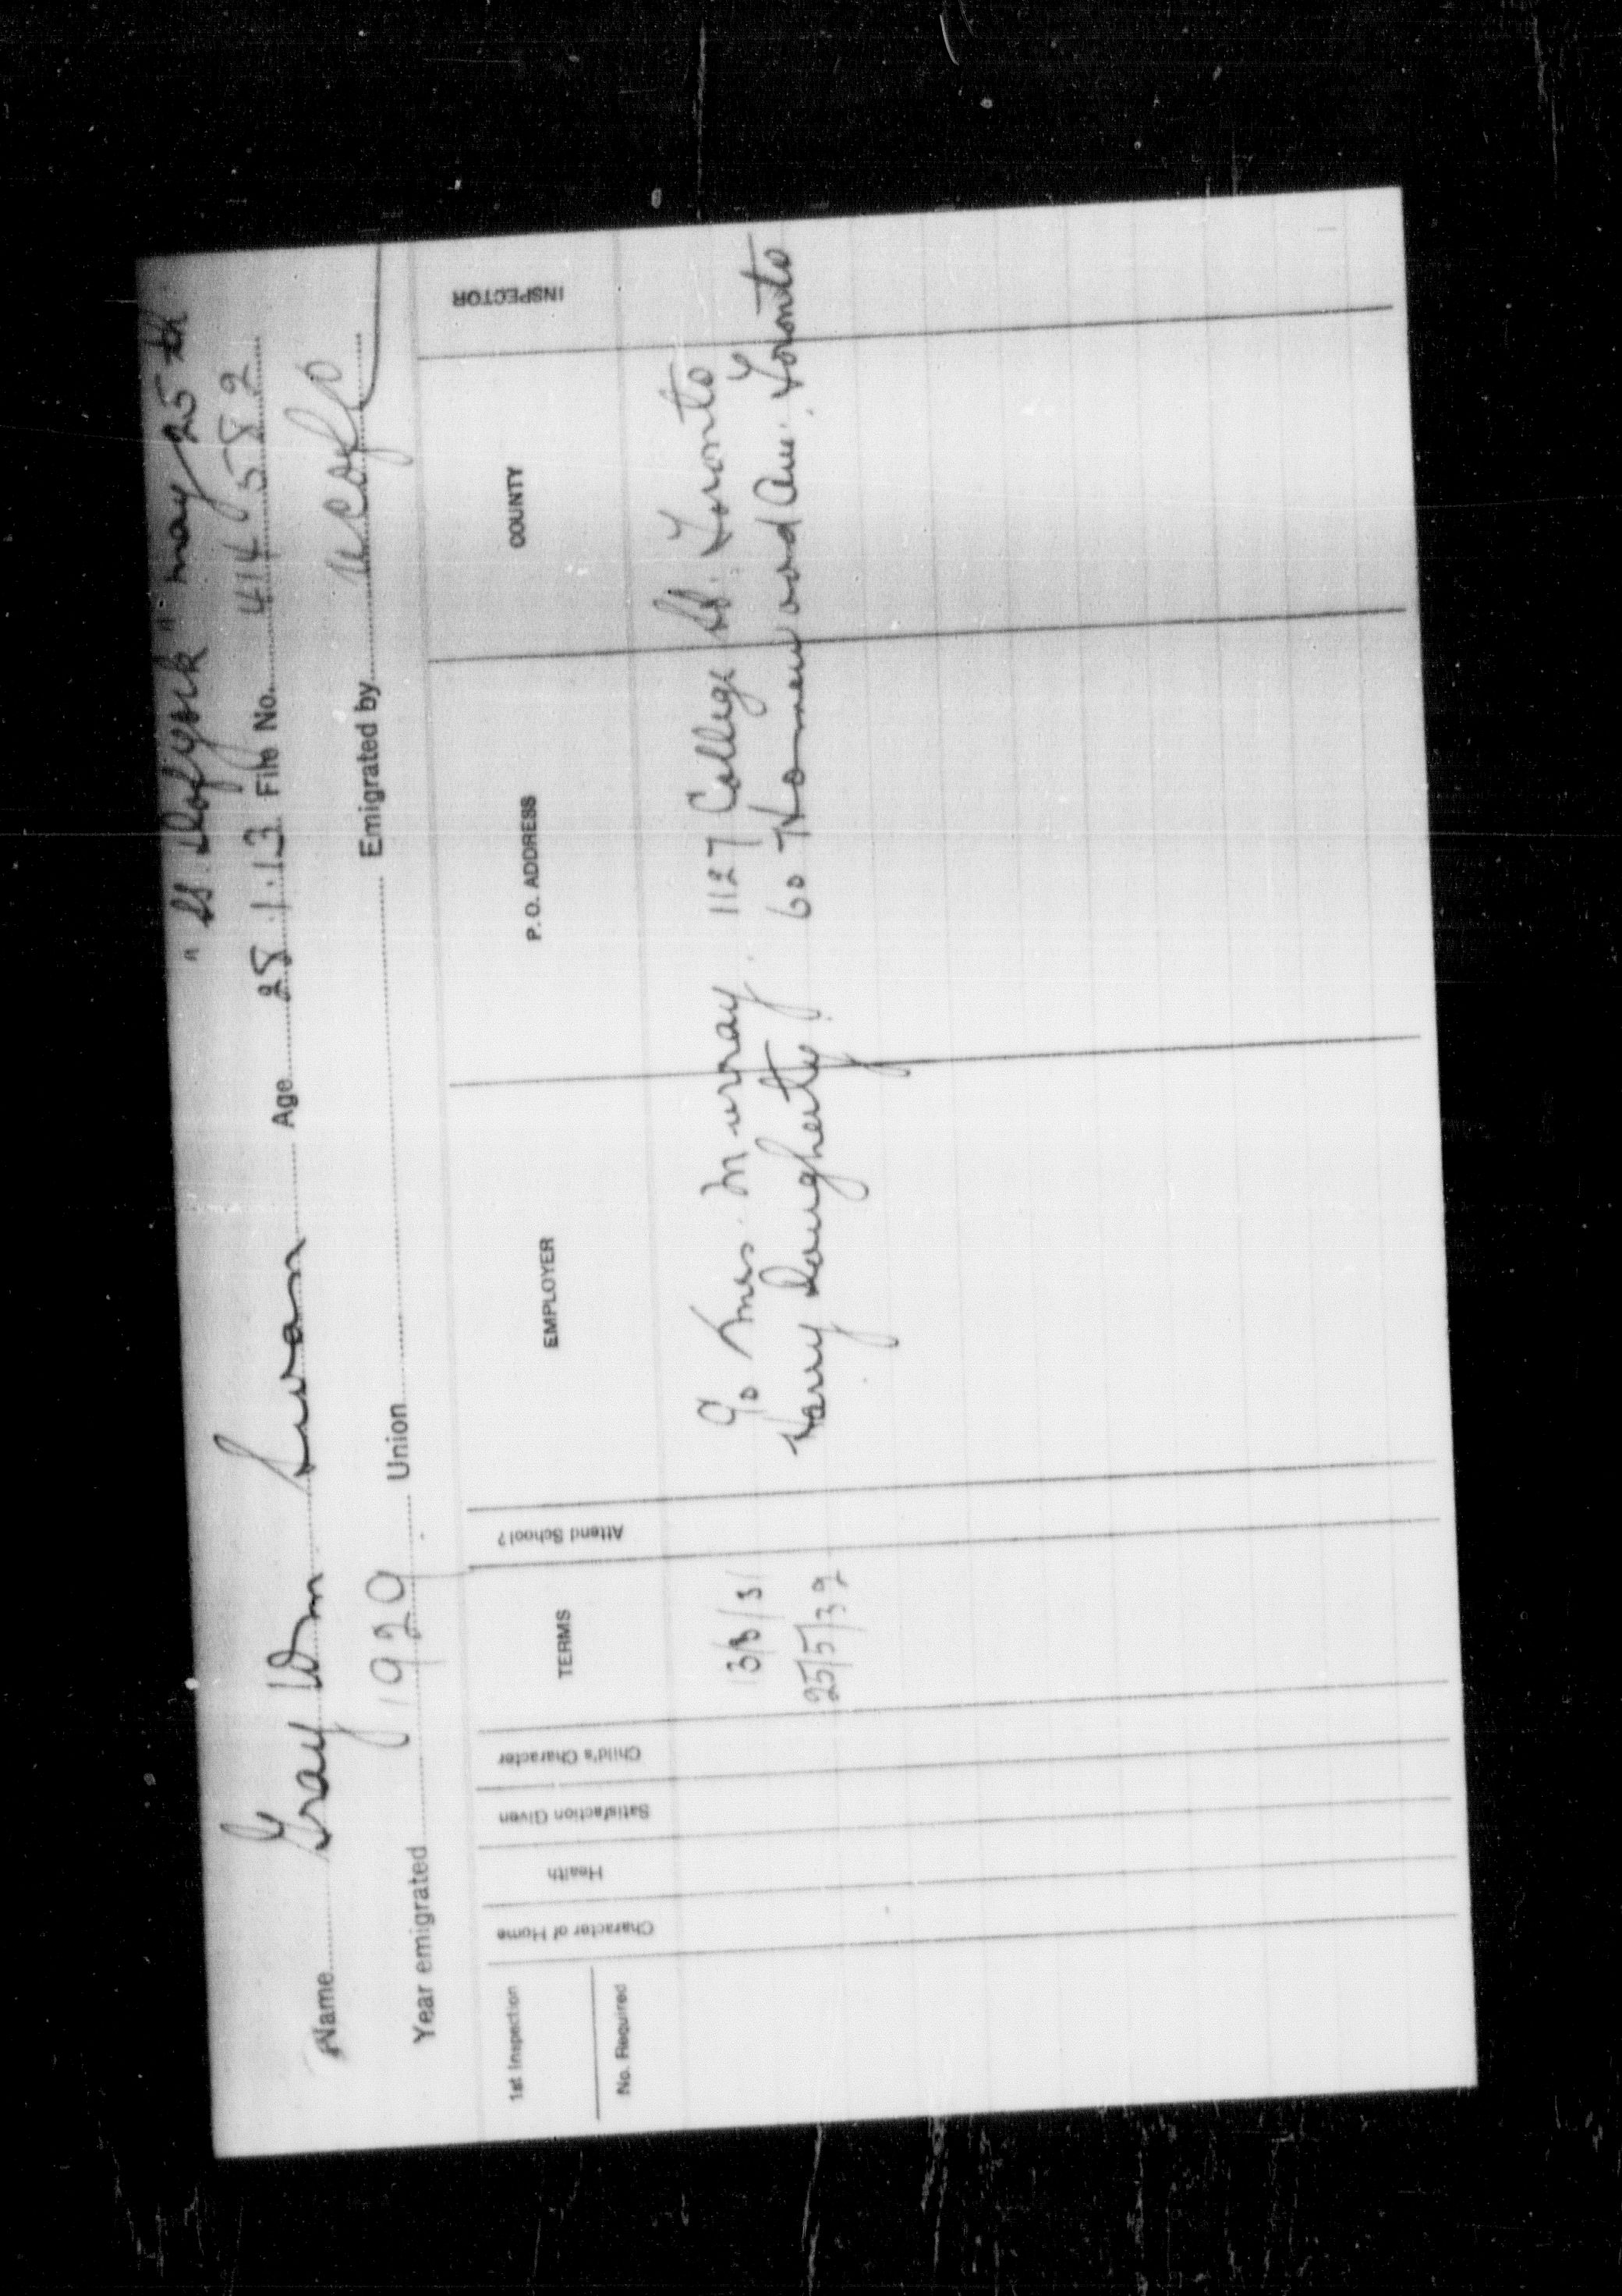 " SS. D of York " May 25th
Name Gray Wm Swan Age 28.1.13 File No. 414582
Year emigrated 1929 Union Emigrated by U C of C
1st Inspection
No. Required
Character of Home
Health
Satisfaction Given
Child's Character
TERMS
Attend School?
EMPLOYER
P. O. ADDRESS
COUNTY
INSPECTOR
3/8/31 c/o Mrs. Murray. 1127 College St. Toronto
25/5/32 Harry Daugherty. 60 Homewood Ave. Toronto